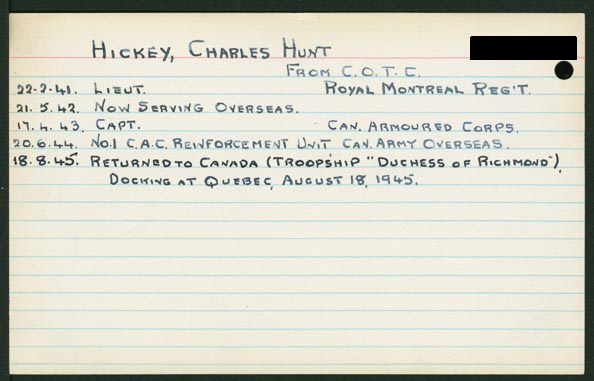 HICKEY, CHARLES HUNT
FROM C.O.T.C.
22-2-41. LIEUT. ROYAL MONTREAL REG'T.
21.5.42. NOW SERVING OVERSEAS.
17.4.43. CAPT. CAN. ARMOURED CORPS.
20.6.44. NO.1 C.A.C. REINFORCEMENT UNIT CAN. ARMY OVERSEAS.
18.8.45. RETURNED TO CANADA (TROOPSHIP "DUCHESS OF RICHMOND"),
DOCKING AT QUEBEC, AUGUST 18, 1945.